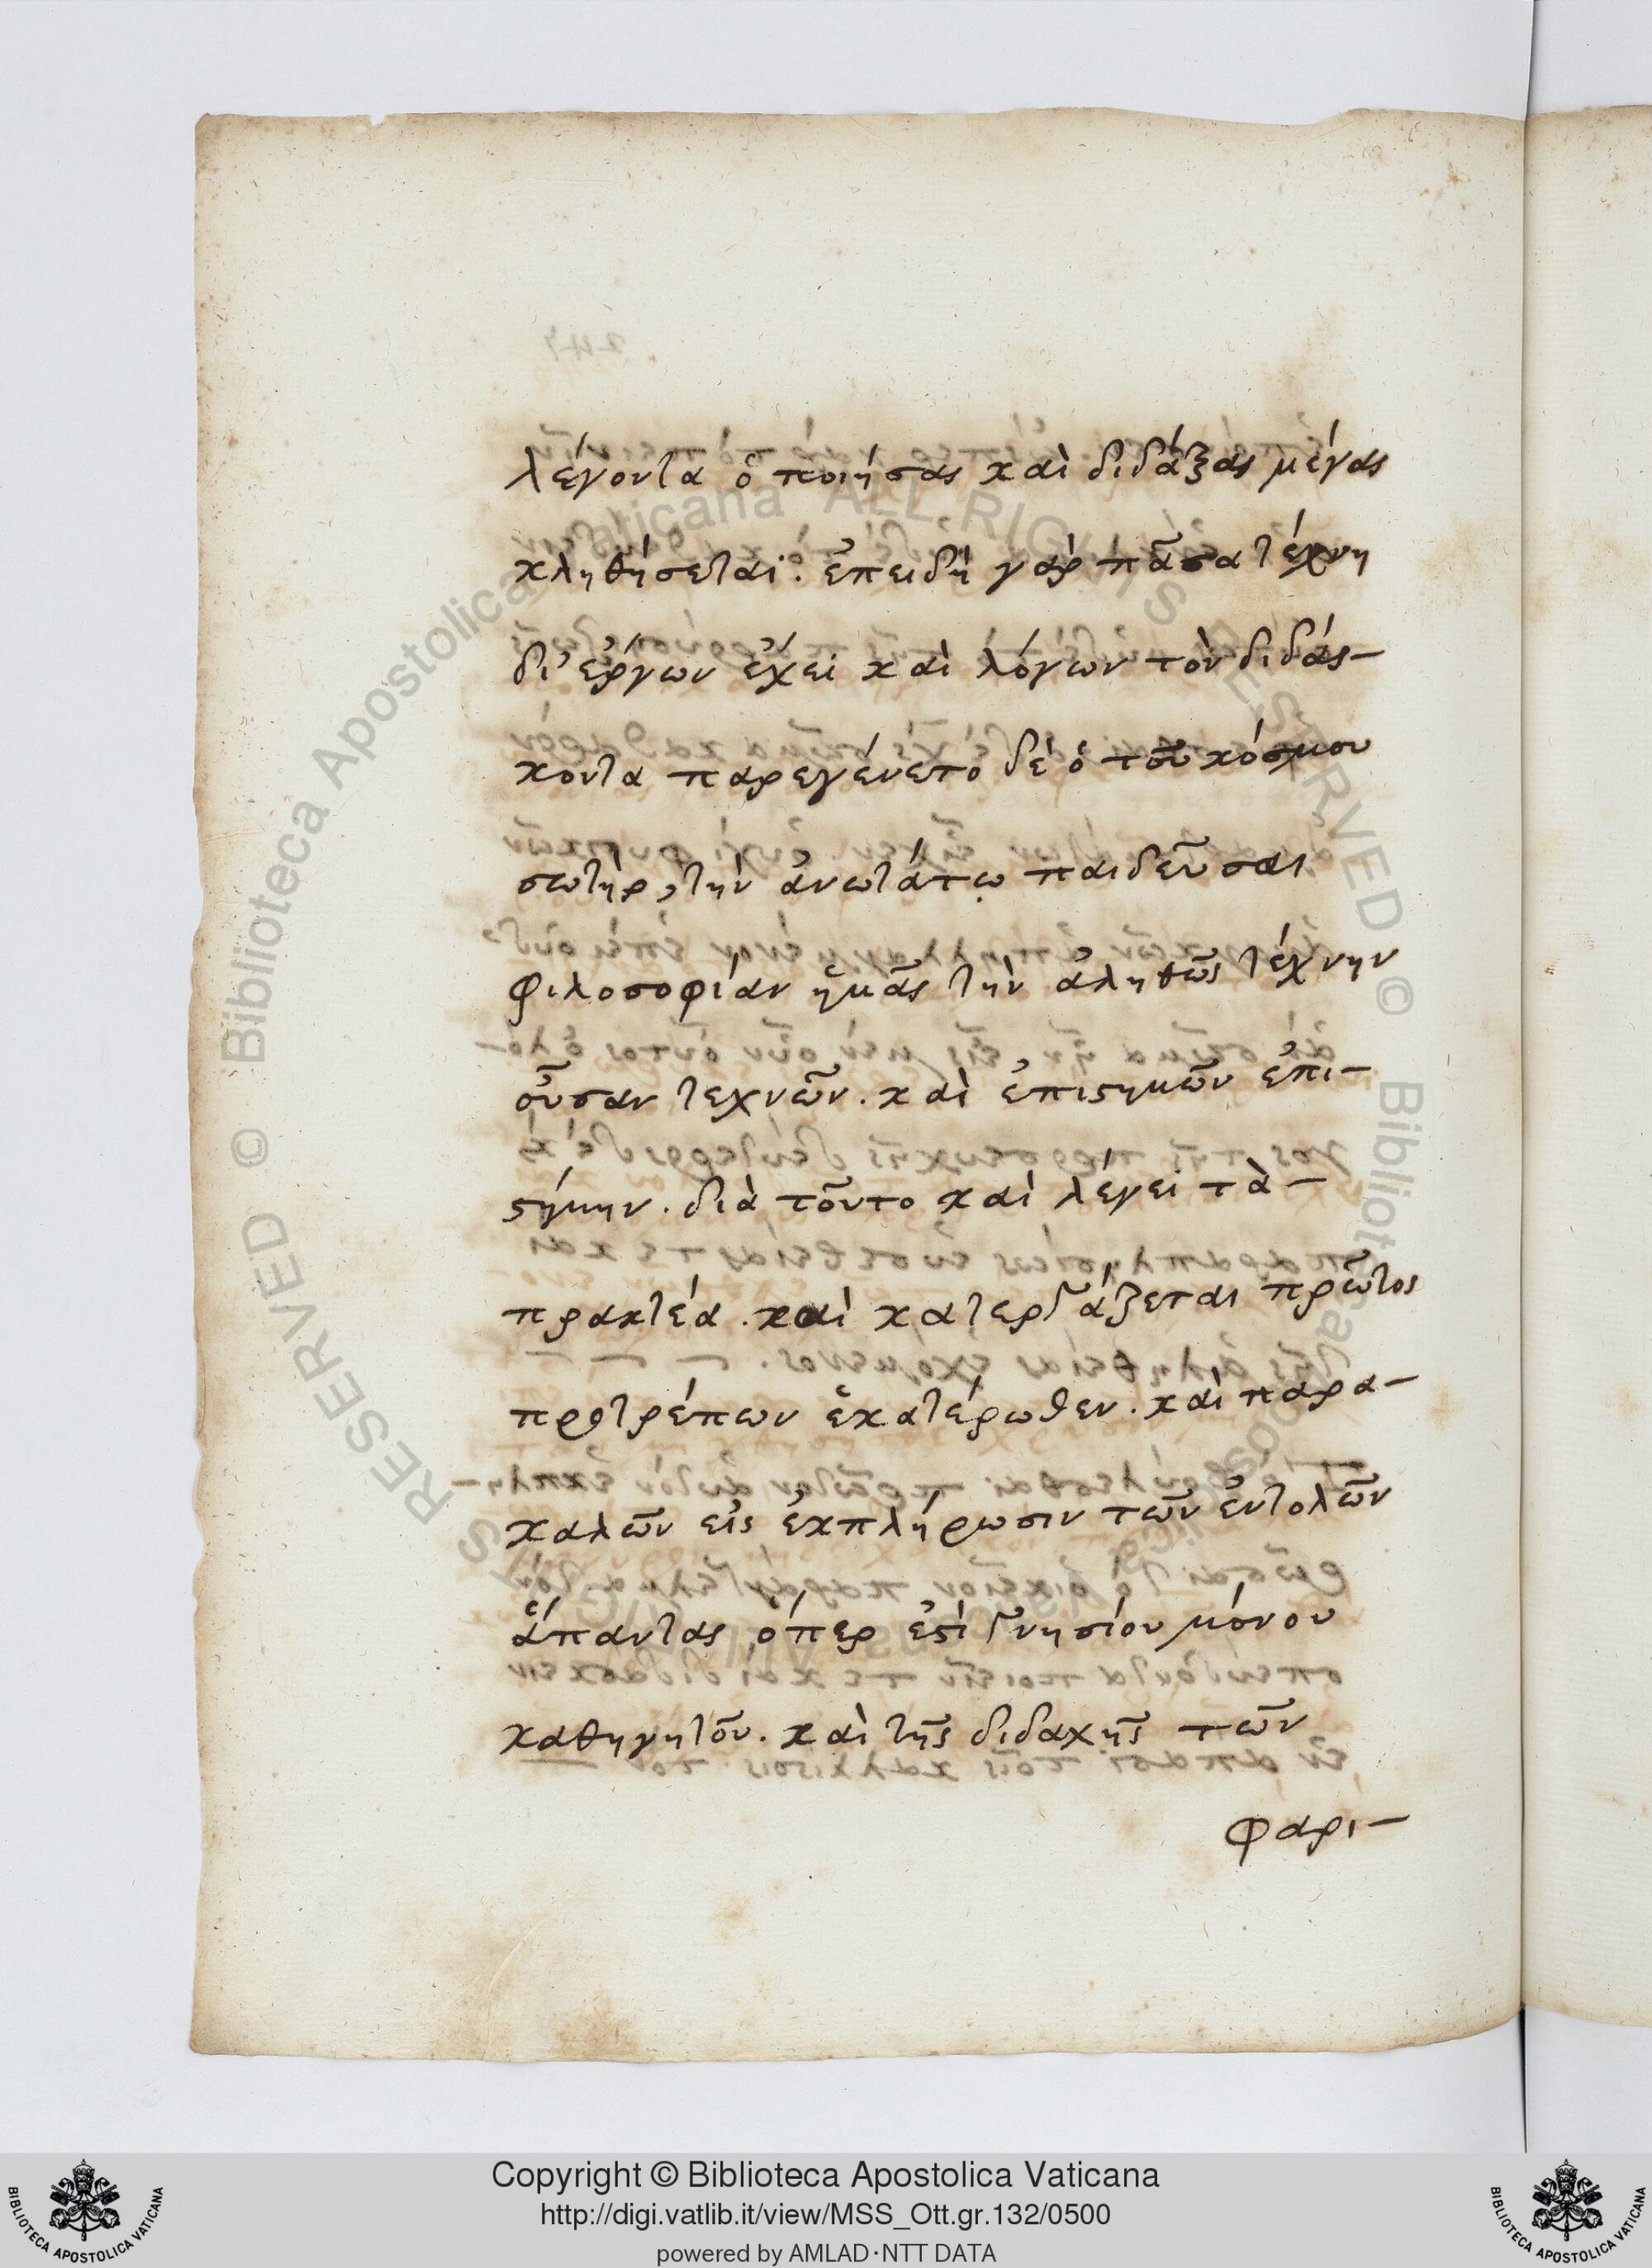 λέγοντα ὁ ποιήσας καὶ διδάξας μέγας
κληθήσεται. ἐπειδὴ γὰρ πᾶσα τέχνη
δι' ἔργων ἔχει καὶ λόγων τὸν διδάσ-
κοντα παρεγένετο δὲ ὁ τοῦ κόσμου
σωτὴρ, τὴν ἀνωτάτω παιδεῦσαι
φιλοσοφίαν ἡμᾶς τὴν ἀληθῶς τέχνην
οὖσαν τεχνῶν. καὶ ἐπιςημῶν ἐπι-
ςήμην. διὰ τοῦτο καὶ λέγει τὰ-
πρακτέα. καὶ κατεργάζεται πρῶτος
προτρέπων ἑκατέρωθεν. καὶ παρα-
καλῶν εἰς ἐκπλήρωσιν τῶν ἐντολῶν
ἅπαντας, ὅπερ ἐςὶ γνησίου μόνου
καθηγητοῦ. καὶ τῆς διδαχῆς τῶν
φαρι-
Copyright © Biblioteca Apostolica Vaticana
http://digi.vatlib.it/view/MSS_Ott.gr.132/0500
powered by AMLAD·NTT DATA
BIBLIOTECA APOSTOLICA VATICANA
BIBLIOTECA APOSTOLICA VATICANA